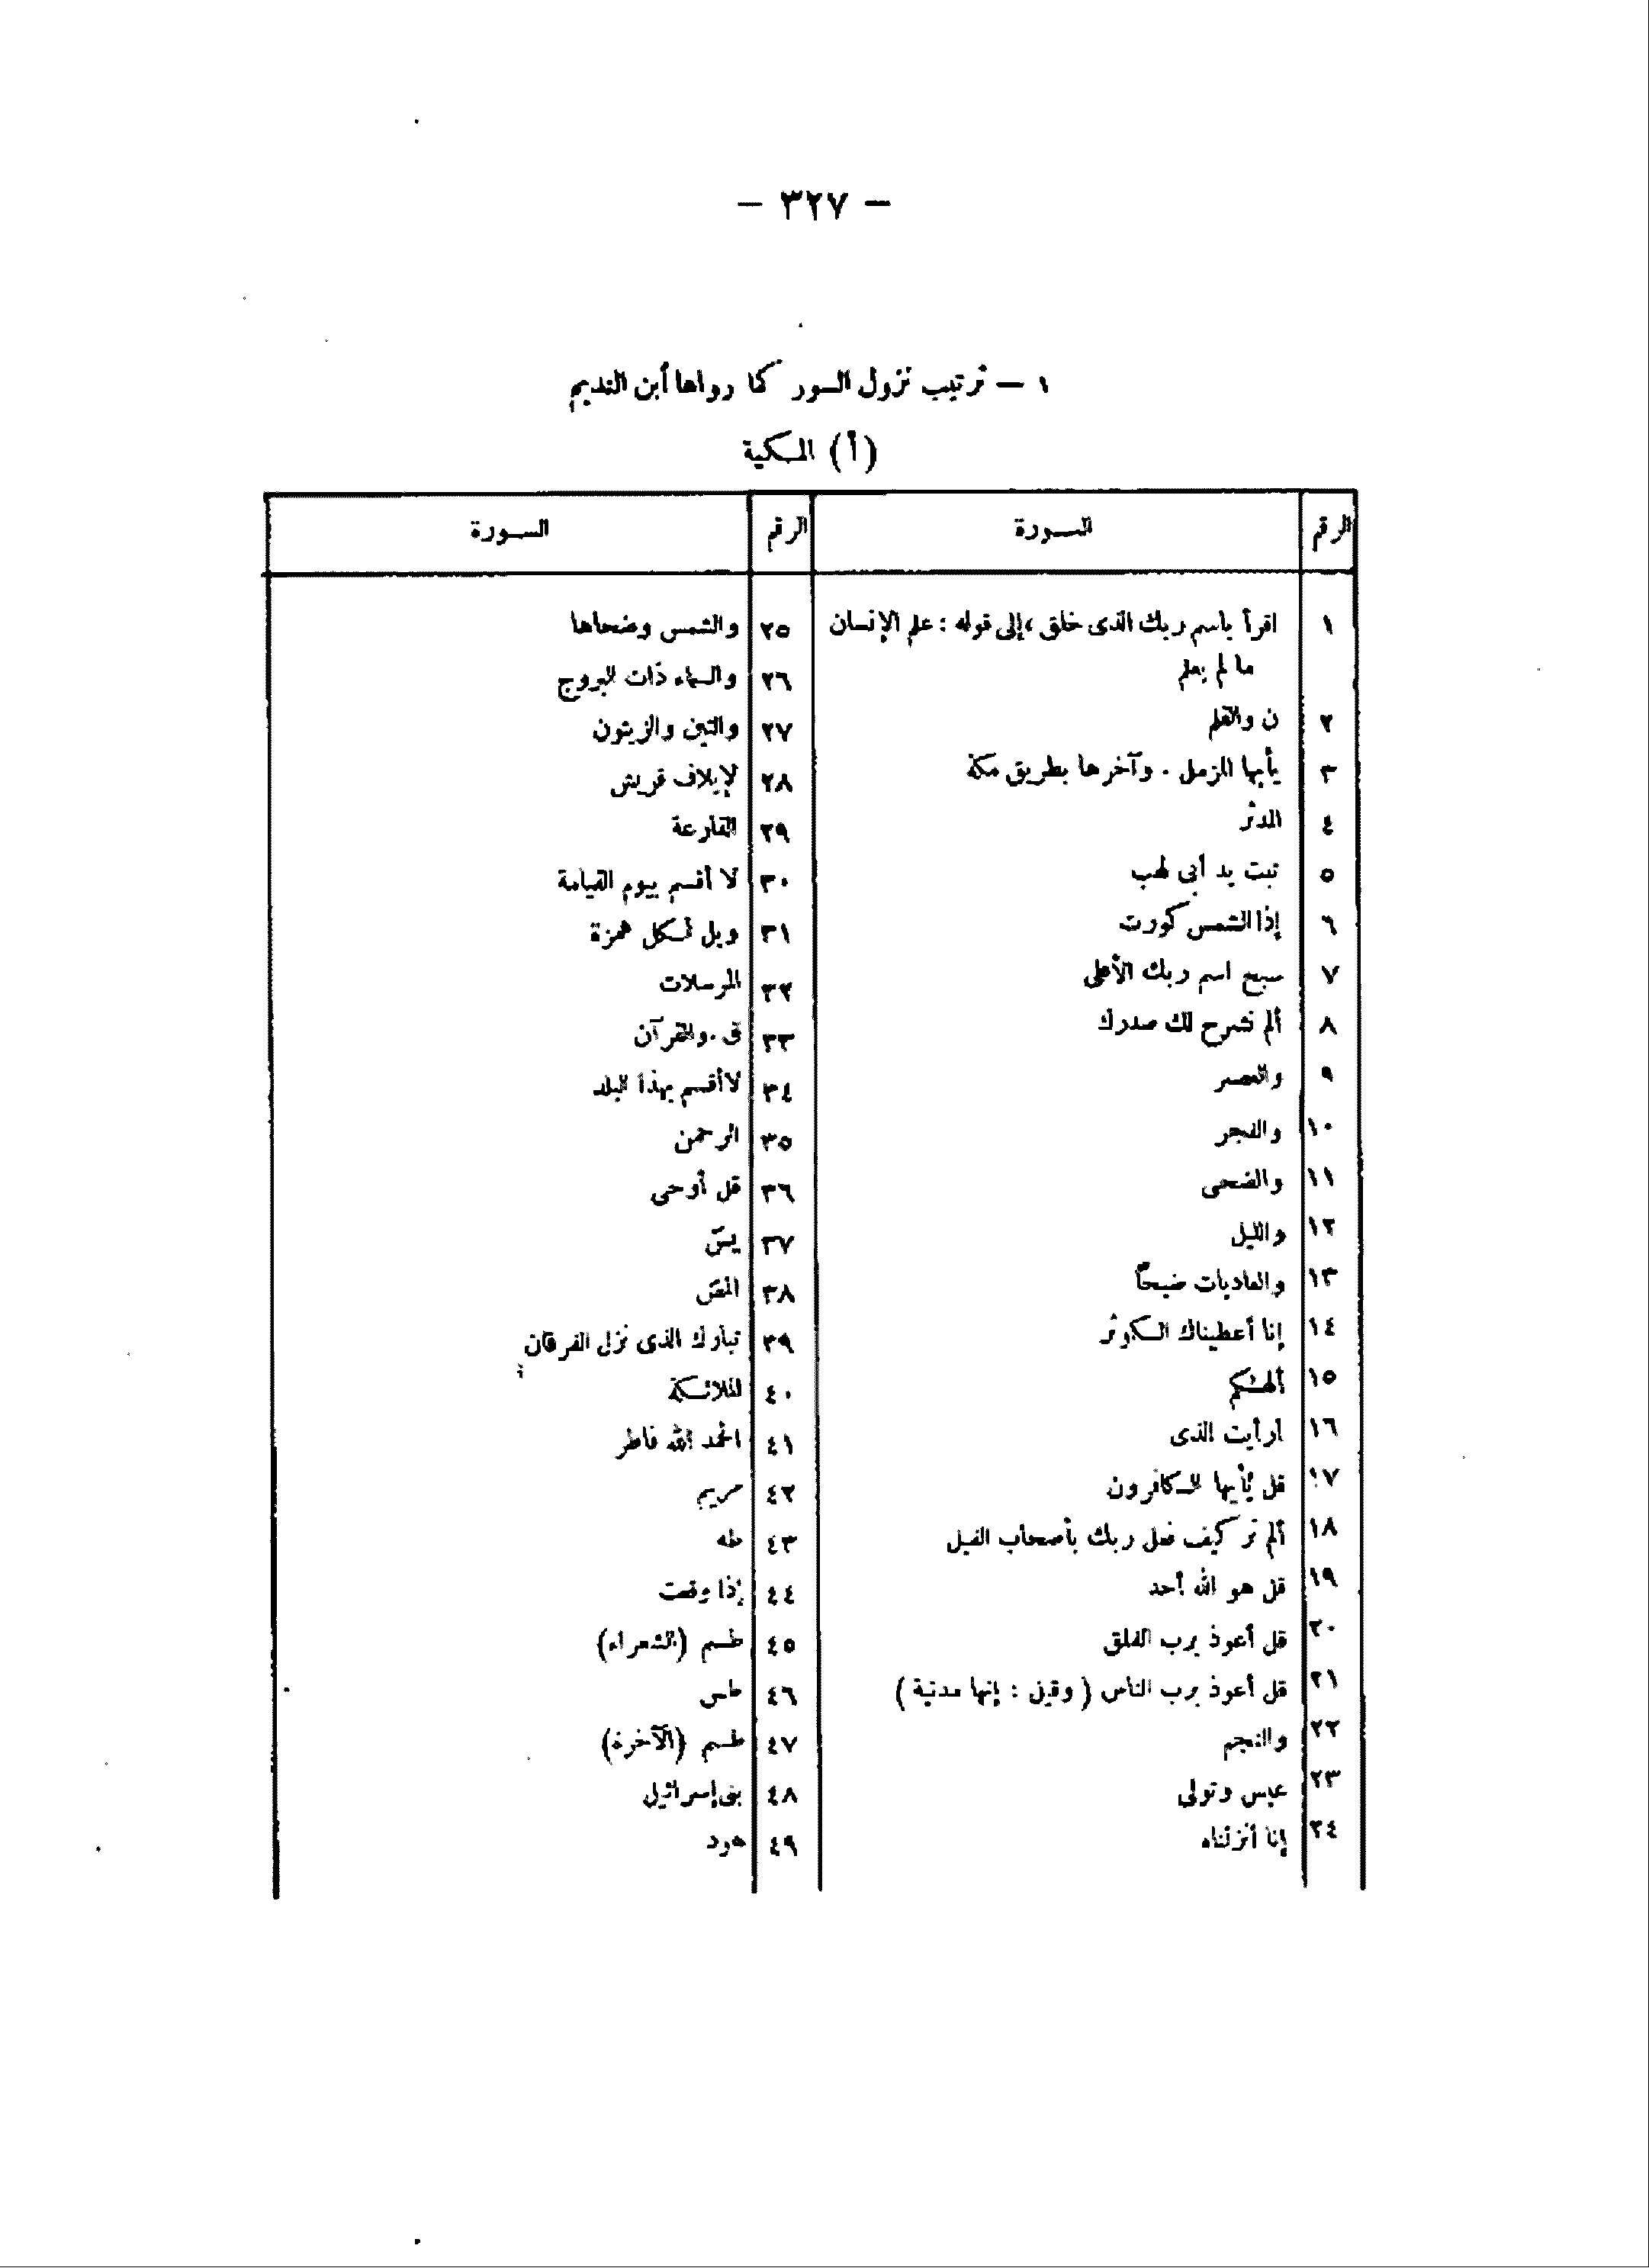 — ٣٢٧ —
١ — ترتيب نزول السور كما رواها أبن النديم
(أ) المكية
الرقم السورة الرقم السورة
١ اقرأ باسم ربك الذى خلق ، إلى قوله : علم الإنسان
ما لم يعلم
٢ ن والقلم
٣ يأيها المزمل . وآخرها بطريق مكة
٤ المدثر
٥ تبت يد أبى لهب
٦ إذا الشمس كورت
٧ سبح اسم ربك الأعلى
٨ ألم نشرح لك صدرك
٩ والعصر
١٠ والفجر
١١ والضحى
١٢ والليل
١٣ والعاديات ضبحاً
١٤ إنا أعطيناك الكوثر
١٥ ألهكم
١٦ أرأيت الذى
١٧ قل يٰأيها الكافرون
١٨ ألم تر كيف فعل ربك بأصحاب الفيل
١٩ قل هو الله أحد
٢٠ قل أعوذ برب الفلق
٢١ قل أعوذ برب الناس ( وقيل : إنها مدنية )
٢٢ والنجم
٢٣ عبس وتولى
٢٤ إنا أنزلناه
٢٥ والشمس وضحاها
٢٦ والسماء ذات البروج
٢٧ والتين والزيتون
٢٨ لإيلاف قريش
٢٩ القارعة
٣٠ لا أقسم بيوم القيامة
٣١ ويل لكل همزة
٣٢ المرسلات
٣٣ ق . والقرآن
٣٤ لا أقسم بهذا البلد
٣٥ الرحمن
٣٦ قل أوحى
٣٧ يسۤ
٣٨ المۤصۤ
٣٩ تبارك الذى نزل الفرقان
٤٠ الملائكة
٤١ الحمد الله فاطر
٤٢ مريم
٤٣ طه
٤٤ إذا وقعت
٤٥ طسم (الشعراء)
٤٦ طس
٤٧ طسم (الآخرة)
٤٨ بنى إسرائيل
٤٩ هود